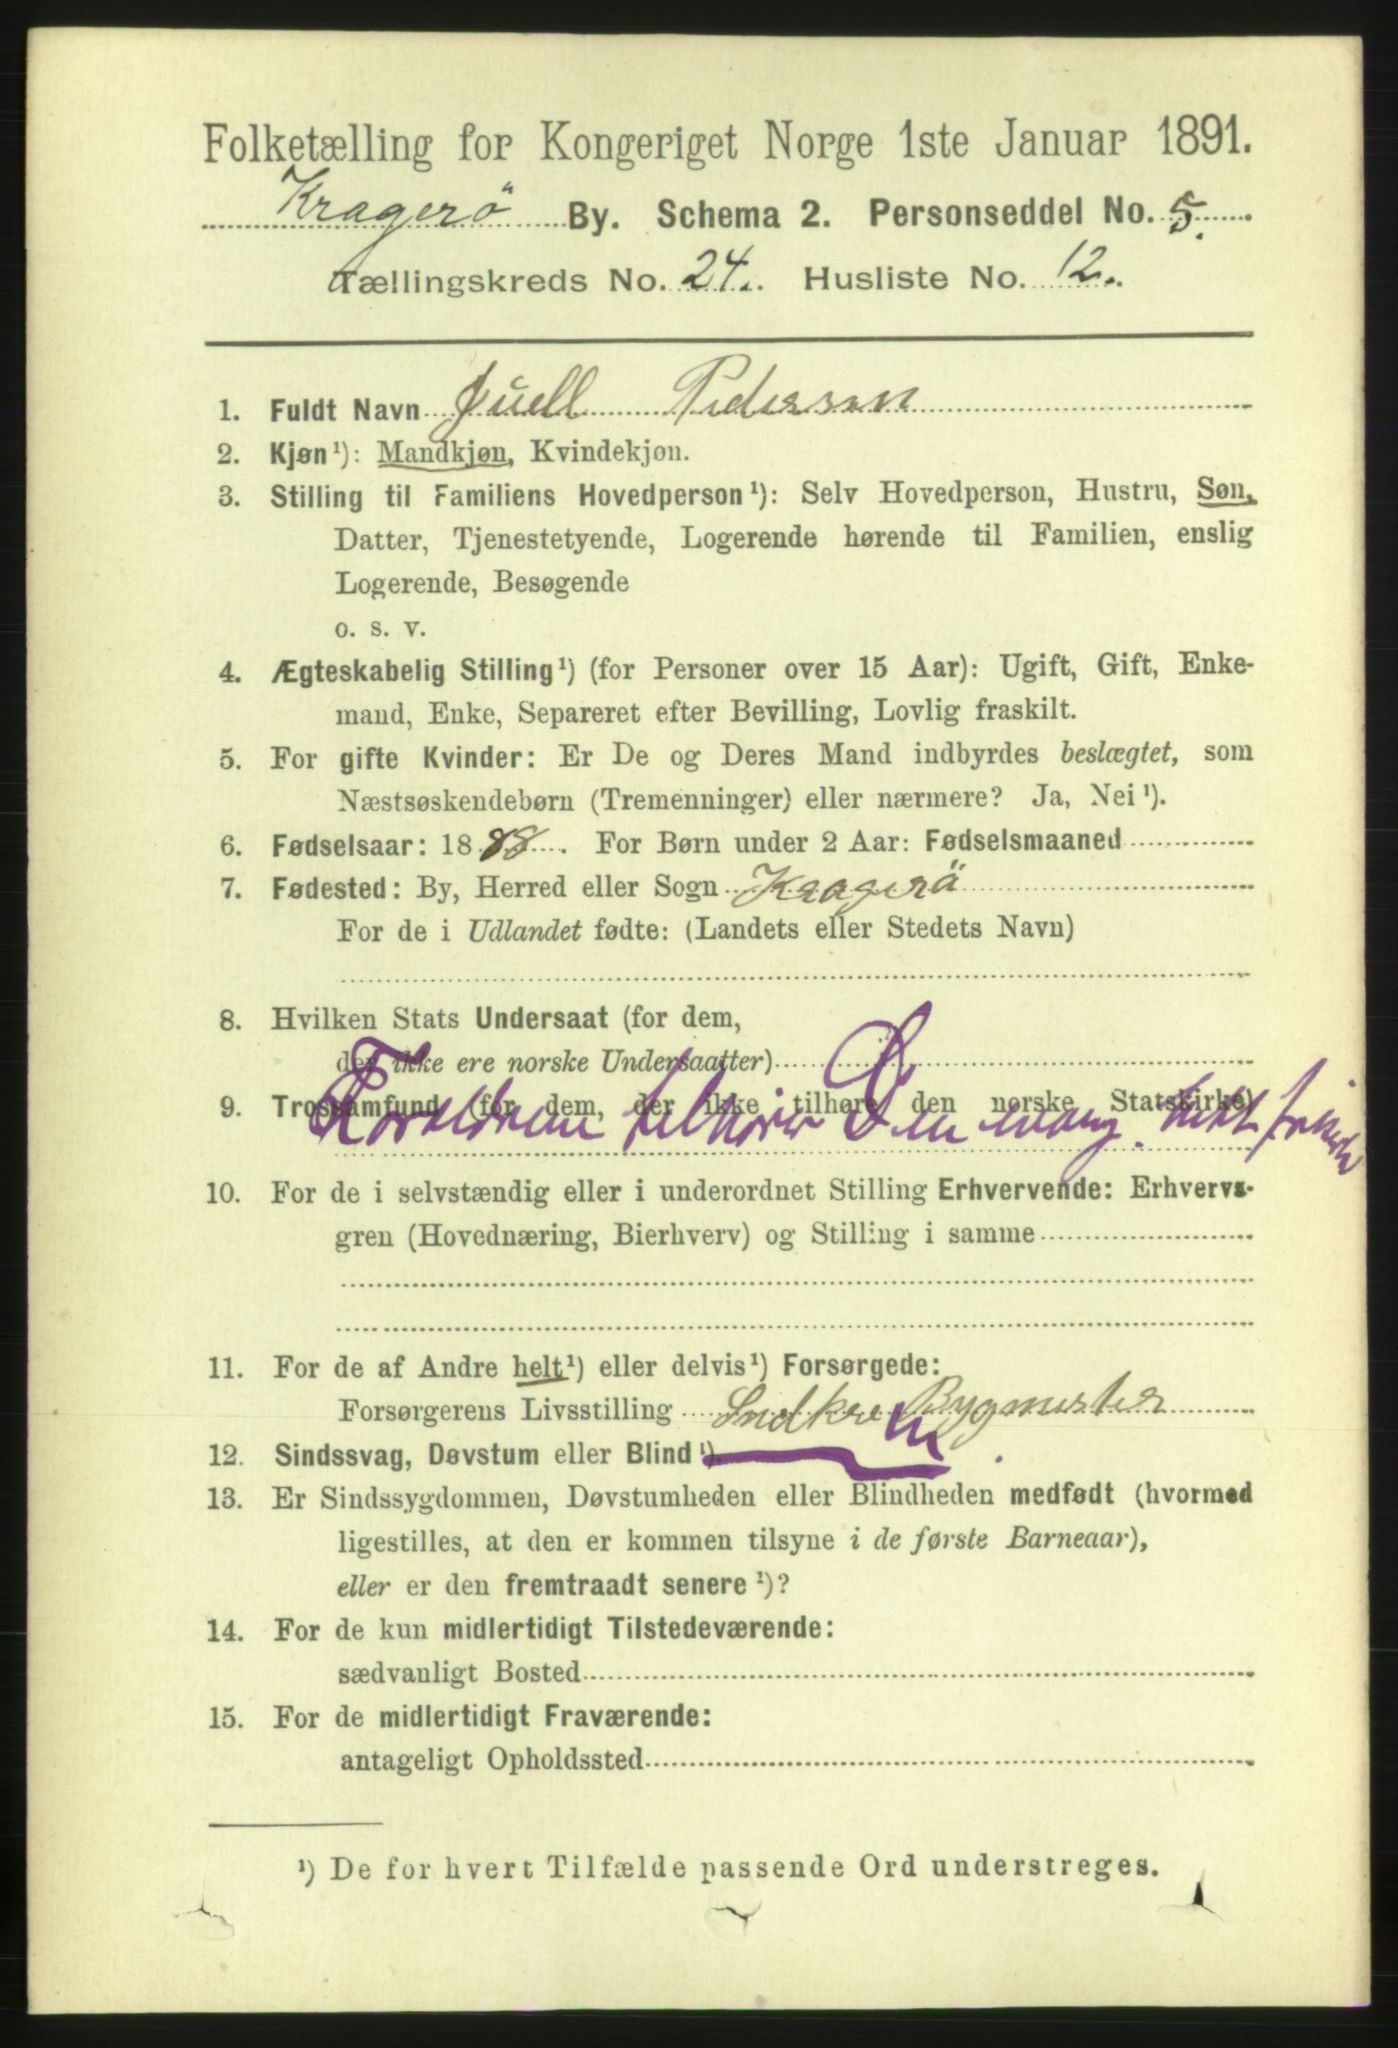 Folketælling for Kongeriget Norge 1ste Januar 1891.
Kragerö By. Schema 2. Personseddel No. 5.
Tællingskreds No. 24. Husliste No. 12.
1. Fuldt Navn Juell Pedersen
2. Kjøn¹): Mandkjøn, Kvindekjøn.
3. Stilling til Familiens Hovedperson¹): Selv Hovedperson, Hustru, Søn,
Datter, Tjenestetyende, Logerende hørende til Familien, enslig
Logerende, Besøgende
o. s. v.
4. Ægteskabelig Stilling¹) (for Personer over 15 Aar): Ugift, Gift, Enke-
mand, Enke, Separeret efter Bevilling, Lovlig fraskilt.
5. For gifte Kvinder: Er De og Deres Mand indbyrdes beslægtet, som
Næstsøskendebørn (Tremenninger) eller nærmere? Ja, Nei¹).
6. Fødselsaar: 1888. For Børn under 2 Aar: Fødselsmaaned
7. Fødested: By, Herred eller Sogn Kragerö
For de i Udlandet fødte: (Landets eller Stedets Navn)
8. Hvilken Stats Undersaat (for dem,
der ikke ere norske Undersaatter)
9. Trossamfund (for dem, der ikke tilhøre den norske Statskirke)
Forældrene tilhører Den evang. luth. frikirke
10. For de i selvstændig eller i underordnet Stilling Erhvervende: Erhvervs-
gren (Hovednæring, Bierhverv) og Stilling i samme
11. For de af Andre helt¹) eller delvis¹) Forsørgede:
Forsørgerens Livsstilling Bygmester
12. Sindssvag, Døvstum eller Blind¹).
13. Er Sindssygdommen, Døvstumheden eller Blindheden medfødt (hvormed
ligestilles, at den er kommen tilsyne i de første Barneaar),
eller er den fremtraadt senere¹)?
14. For de kun midlertidigt Tilstedeværende:
sædvanligt Bosted
15. For de midlertidigt Fraværende:
antageligt Opholdssted
¹) De for hvert Tilfælde passende Ord understreges.